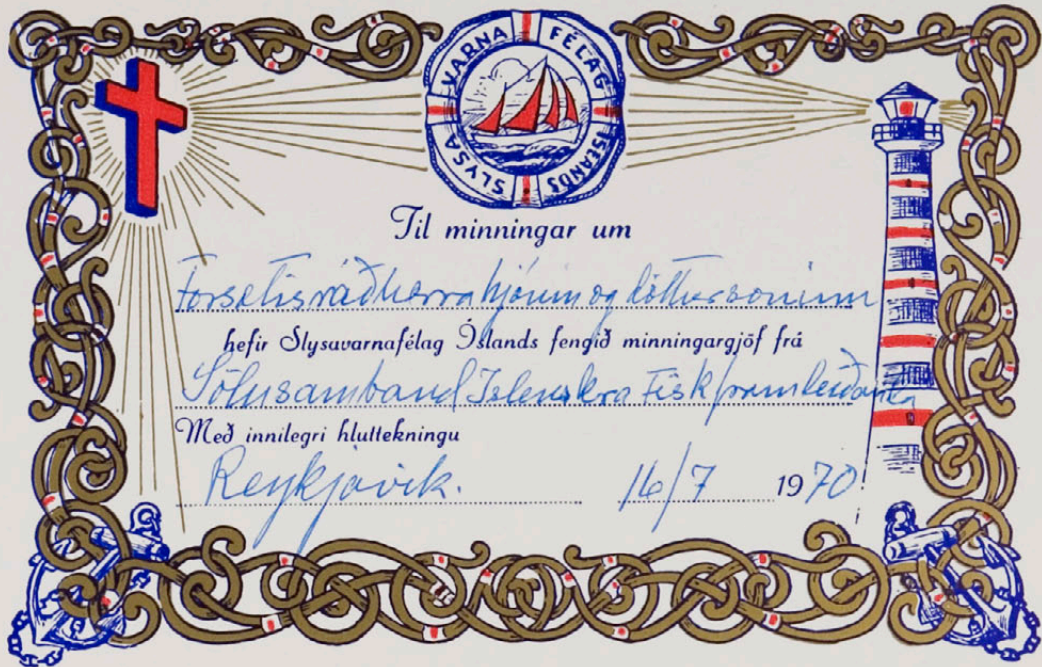 SLYSAVARNAFÉLAG ÍSLANDS
Til minningar um
Forsætisráðherrahjónin og dóttursoninn
hefir Slysavarnafélag Íslands fengið minningargjöf frá
Sölusamband Íslenskra Fiskframleiðanda
Með innilegri hluttekningu
Reykjavík. 16/7 1970